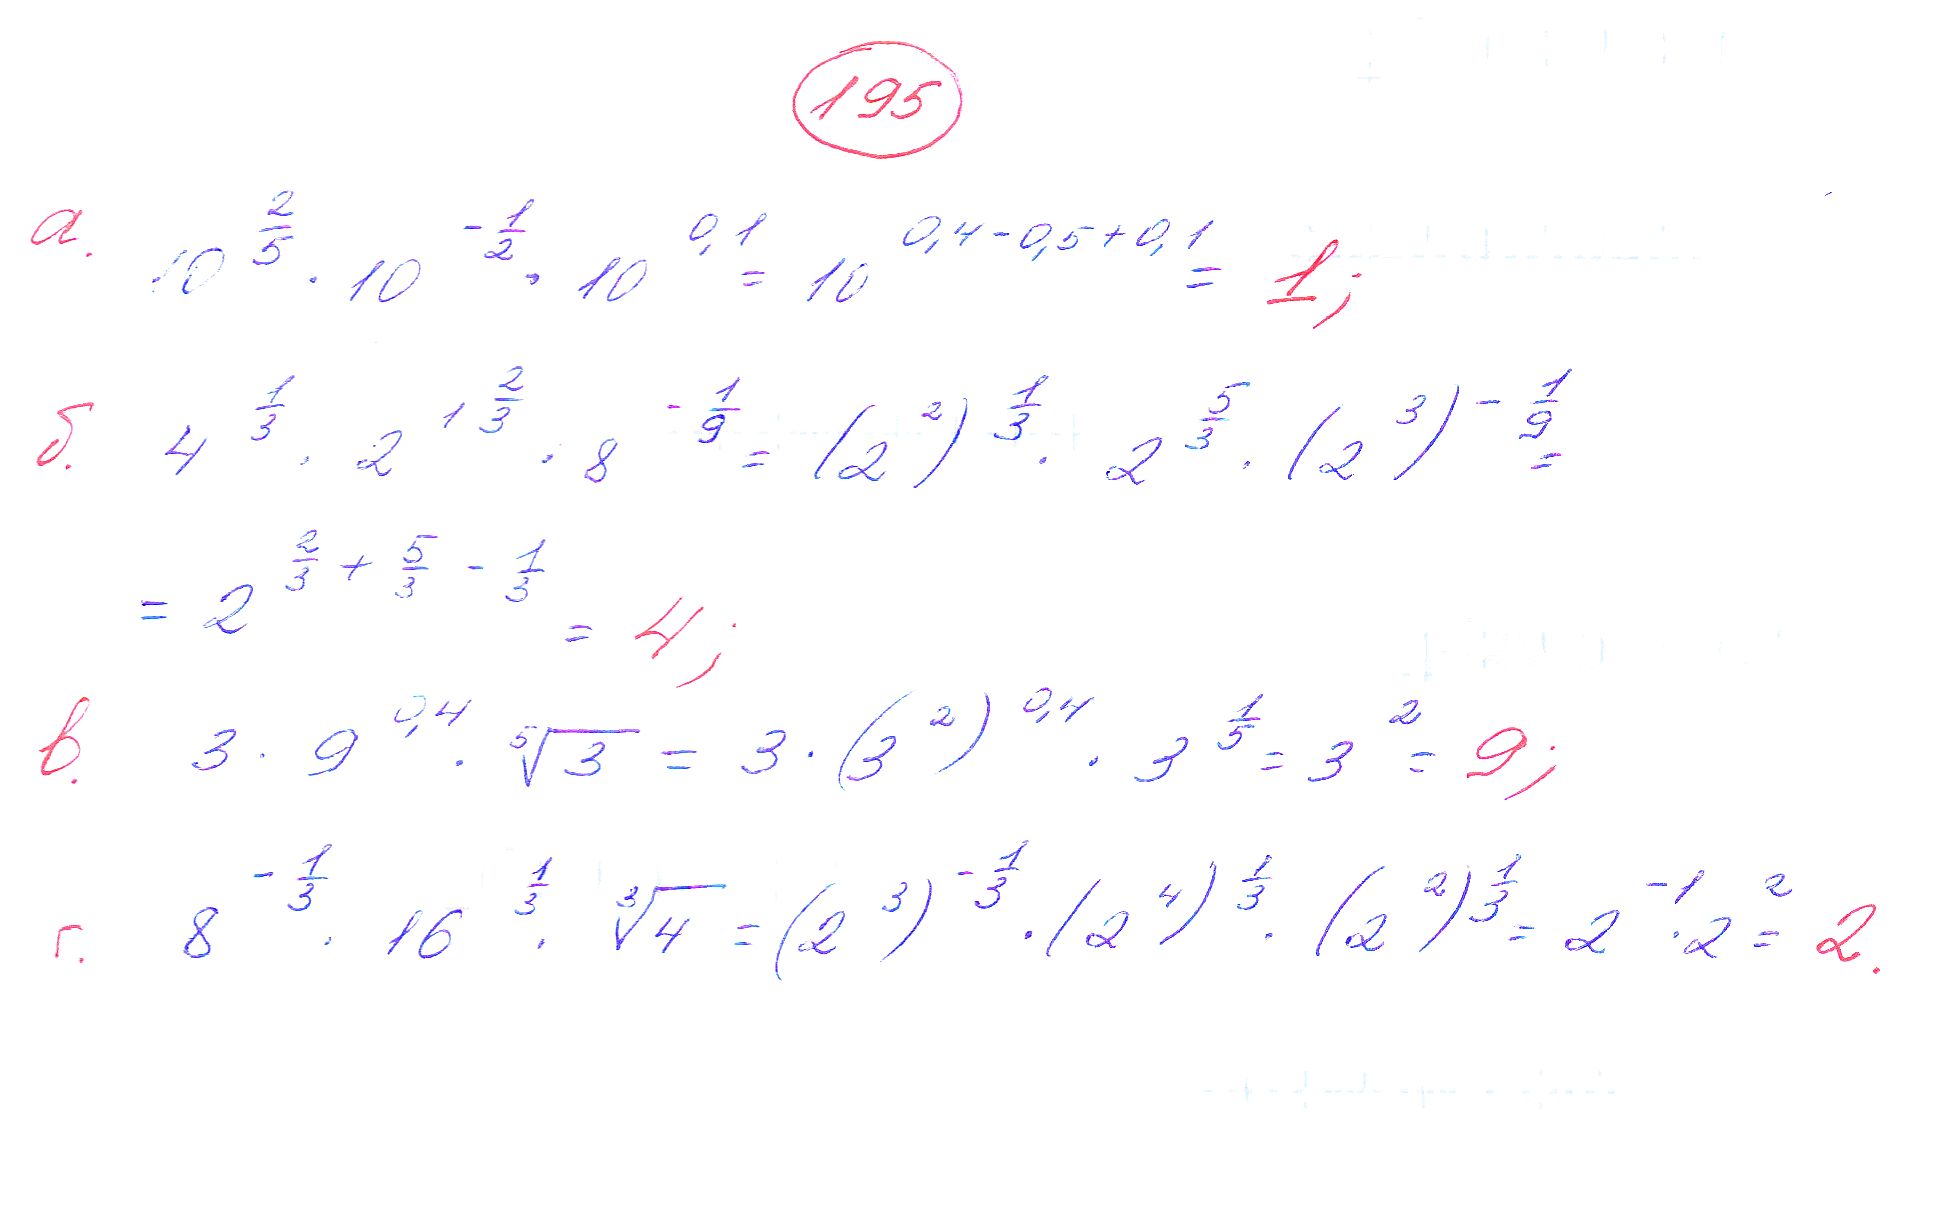 195
а. 10^(2/5) · 10^(-1/2) · 10^(0,1) = 10^(0,4-0,5+0,1) = 1;
б. 4^(1/3) · 2^(1 2/3) · 8^(-1/9) = (2^2)^(1/3) · 2^(5/3) · (2^3)^(-1/9) =
= 2^(2/3 + 5/3 - 1/3) = 4;
в. 3 · 9^(0,4) · ⁵√3 = 3 · (3^2)^(0,4) · 3^(1/5) = 3^2 = 9;
г. 8^(-1/3) · 16^(1/3) · ³√4 = (2^3)^(-1/3) · (2^4)^(1/3) · (2^2)^(1/3) = 2^(-1) · 2^2 = 2.